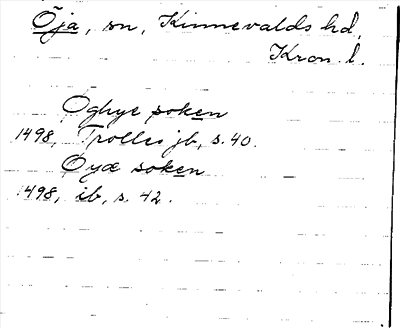 Öja, sn, Kinnevalds hd,
Kron. l.
Oghye soken
1498, Trolles jb, s. 40.
Oyæ soken
1498, ib, s. 42.